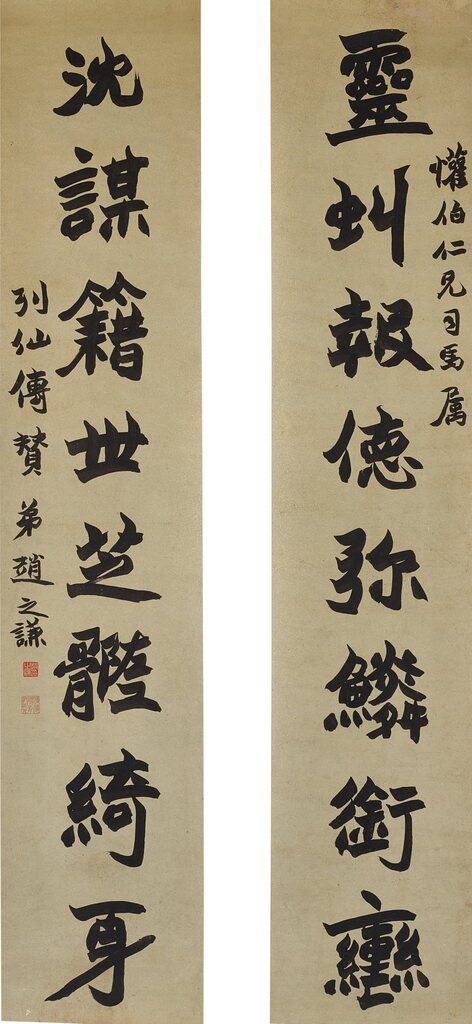 懽伯仁兄司馬属
靈虯報德弥鱗銜轡
沈謀籍世芝體綺身
列仙傳贊 弟趙之謙